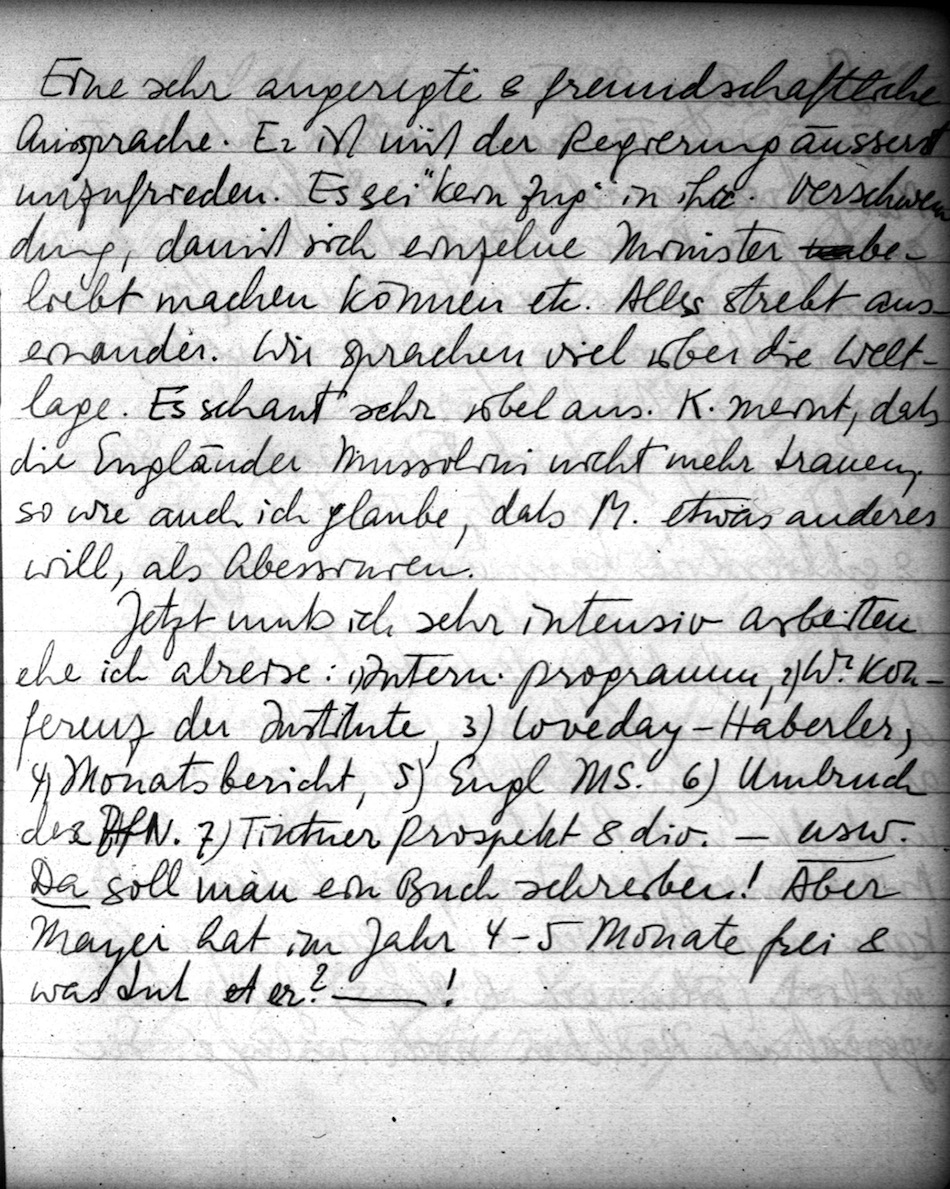 Eine sehr angeregte & freundschaftliche
Aussprache. Er ist mit der Regierung äusserst
unzufrieden. Es sei "kein Zug" in ihr. Verschwen
dung, damit sich einzelne Minister be-
liebt machen können etc. Alles strebt aus-
einander. Wir sprachen viel über die Welt-
lage. Es schaut sehr übel aus. K. meint, dass
die Engländer Mussolini nicht mehr trauen,
so wie auch ich glaube, dass M. etwas anderes
will, als Abessinien.
Jetzt muss ich sehr intensiv arbeiten
ehe ich abreise: 1) Intern. Programm, 2) Wr. Kon-
ferenz der Institute, 3) Loveday-Haberler,
4) Monatsbericht, 5) Engl MS. 6) Umbruch
der ZfN. 7) Tintner Prospekt & div. — usw.
Da soll man ein Buch schreiben! Aber
Mayer hat im Jahr 4-5 Monate frei &
was tut er? — !